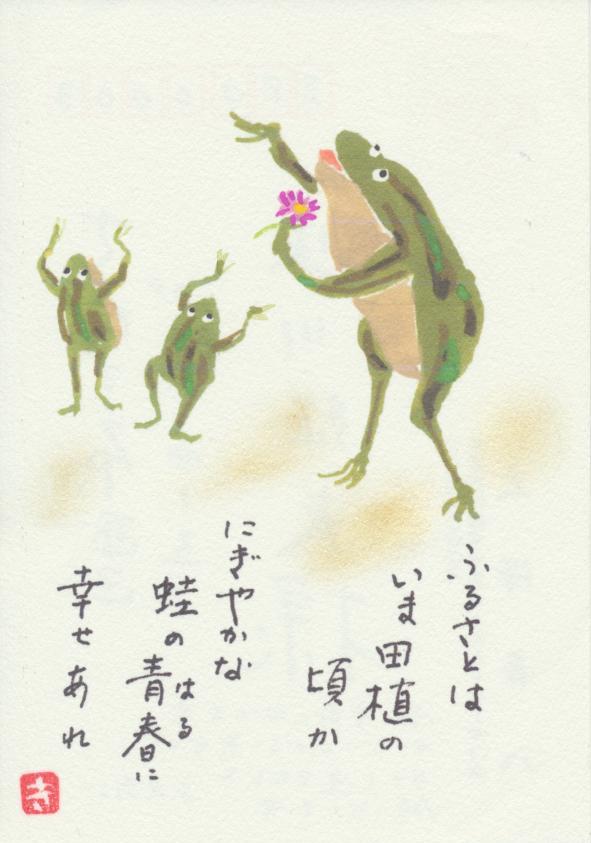 ふるさとは
いま田植の
頃か
にぎやかな
蛙の青春に
はる
幸せあれ
寺